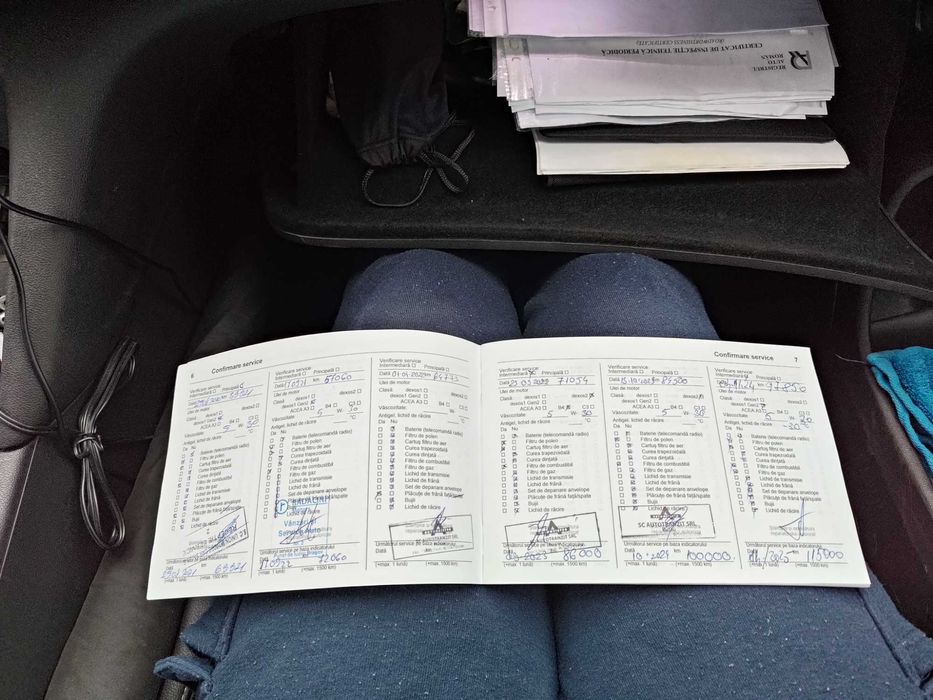 REGISTRUL
AUTO
ROMAN
CERTIFICAT DE INSPECȚIE TEHNICĂ PERIODICĂ
(ROADWORTHINESS CERTIFICATE)
6 Confirmare service
Verificare service
Intermediară Principală
Data km
Ulei de motor
Clasă dexos1 dexos2
dexos1 Gen2
ACEA A3 B4 C3
Vâscozitate: 5 W- 30
Antigel, lichid de răcire °C
Da Nu
Baterie (telecomandă radio)
Filtru de polen
Cartuș filtru de aer
Curea trapezoidală
Curea dințată
Filtru de combustibil
Filtru de gaz
Lichid de transmisie
Lichid de frână
Set de depanare anvelope
Plăcuțe de frână față/spate
Bujii
Lichid de răcire
Următorul service pe baza indicatorului
Data km
(+max. 1 lună) (+max. 1500 km)
Verificare service
Intermediară Principală
Data km 51060
Ulei de motor
Clasă dexos1 dexos2
dexos1 Gen2
ACEA A3 B4 C3
Vâscozitate: 5 W- 30
Antigel, lichid de răcire °C
Da Nu
Baterie (telecomandă radio)
Filtru de polen
Cartuș filtru de aer
Curea trapezoidală
Curea dințată
Filtru de combustibil
Filtru de gaz
Lichid de transmisie
Lichid de frână
Set de depanare anvelope
Plăcuțe de frână față/spate
Bujii
Lichid de răcire
Vânzători
Service Auto
Următorul service pe baza indicatorului
(+max. 1 lună) (+max. 1500 km)
Verificare service
Intermediară Principală
Data
Ulei de motor
Clasă dexos1 dexos2
dexos1 Gen2
ACEA A3 B4 C3
Vâscozitate: 5 W- 30
Antigel, lichid de răcire °C
Da Nu
Baterie (telecomandă radio)
Filtru de polen
Cartuș filtru de aer
Curea trapezoidală
Curea dințată
Filtru de combustibil
Filtru de gaz
Lichid de transmisie
Lichid de frână
Set de depanare anvelope
Plăcuțe de frână față/spate
Bujii
SC AUTOTRANZIT SRL
Următorul service pe baza indicatorului
Data km
(+max. 1 lună) (+max. 1500 km)
Confirmare service 7
Verificare service
Intermediară Principală
Data 71054
Ulei de motor
Clasă dexos1 dexos2
dexos1 Gen2
ACEA A3 B4 C3
Vâscozitate: 5 W- 30
Antigel, lichid de răcire °C
Da Nu
Baterie (telecomandă radio)
Filtru de polen
Cartuș filtru de aer
Curea trapezoidală
Curea dințată
Filtru de combustibil
Filtru de gaz
Lichid de transmisie
Lichid de frână
Set de depanare anvelope
Plăcuțe de frână față/spate
Bujii
Lichid de răcire
Următorul service pe baza indicatorului
Data km
2023 86000
(+max. 1 lună) (+max. 1500 km)
Verificare service
Intermediară Principală
Data
Ulei de motor
Clasă dexos1 dexos2
dexos1 Gen2
ACEA A3 B4 C3
Vâscozitate: 5 W- 30
Antigel, lichid de răcire °C
Da Nu
Baterie (telecomandă radio)
Filtru de polen
Cartuș filtru de aer
Curea trapezoidală
Curea dințată
Filtru de combustibil
Filtru de gaz
Lichid de transmisie
Lichid de frână
Set de depanare anvelope
Plăcuțe de frână față/spate
Bujii
Lichid de răcire
SC AUTOTRANZIT SRL
Următorul service pe baza indicatorului
Data km
10.2024 100000
(+max. 1 lună) (+max. 1500 km)
Verificare service
Intermediară Principală
Data 97856
Ulei de motor
Clasă dexos1 dexos2
dexos1 Gen2
ACEA A3 B4 C3
Vâscozitate: 5 W- 30
Antigel, lichid de răcire -30 °C
Da Nu
Baterie (telecomandă radio)
Filtru de polen
Cartuș filtru de aer
Curea trapezoidală
Curea dințată
Filtru de combustibil
Filtru de gaz
Lichid de transmisie
Lichid de frână
Set de depanare anvelope
Plăcuțe de frână față/spate
Bujii
Lichid de răcire
Următorul service pe baza indicatorului
Data km
2025 115000
(+max. 1 lună) (+max. 1500 km)